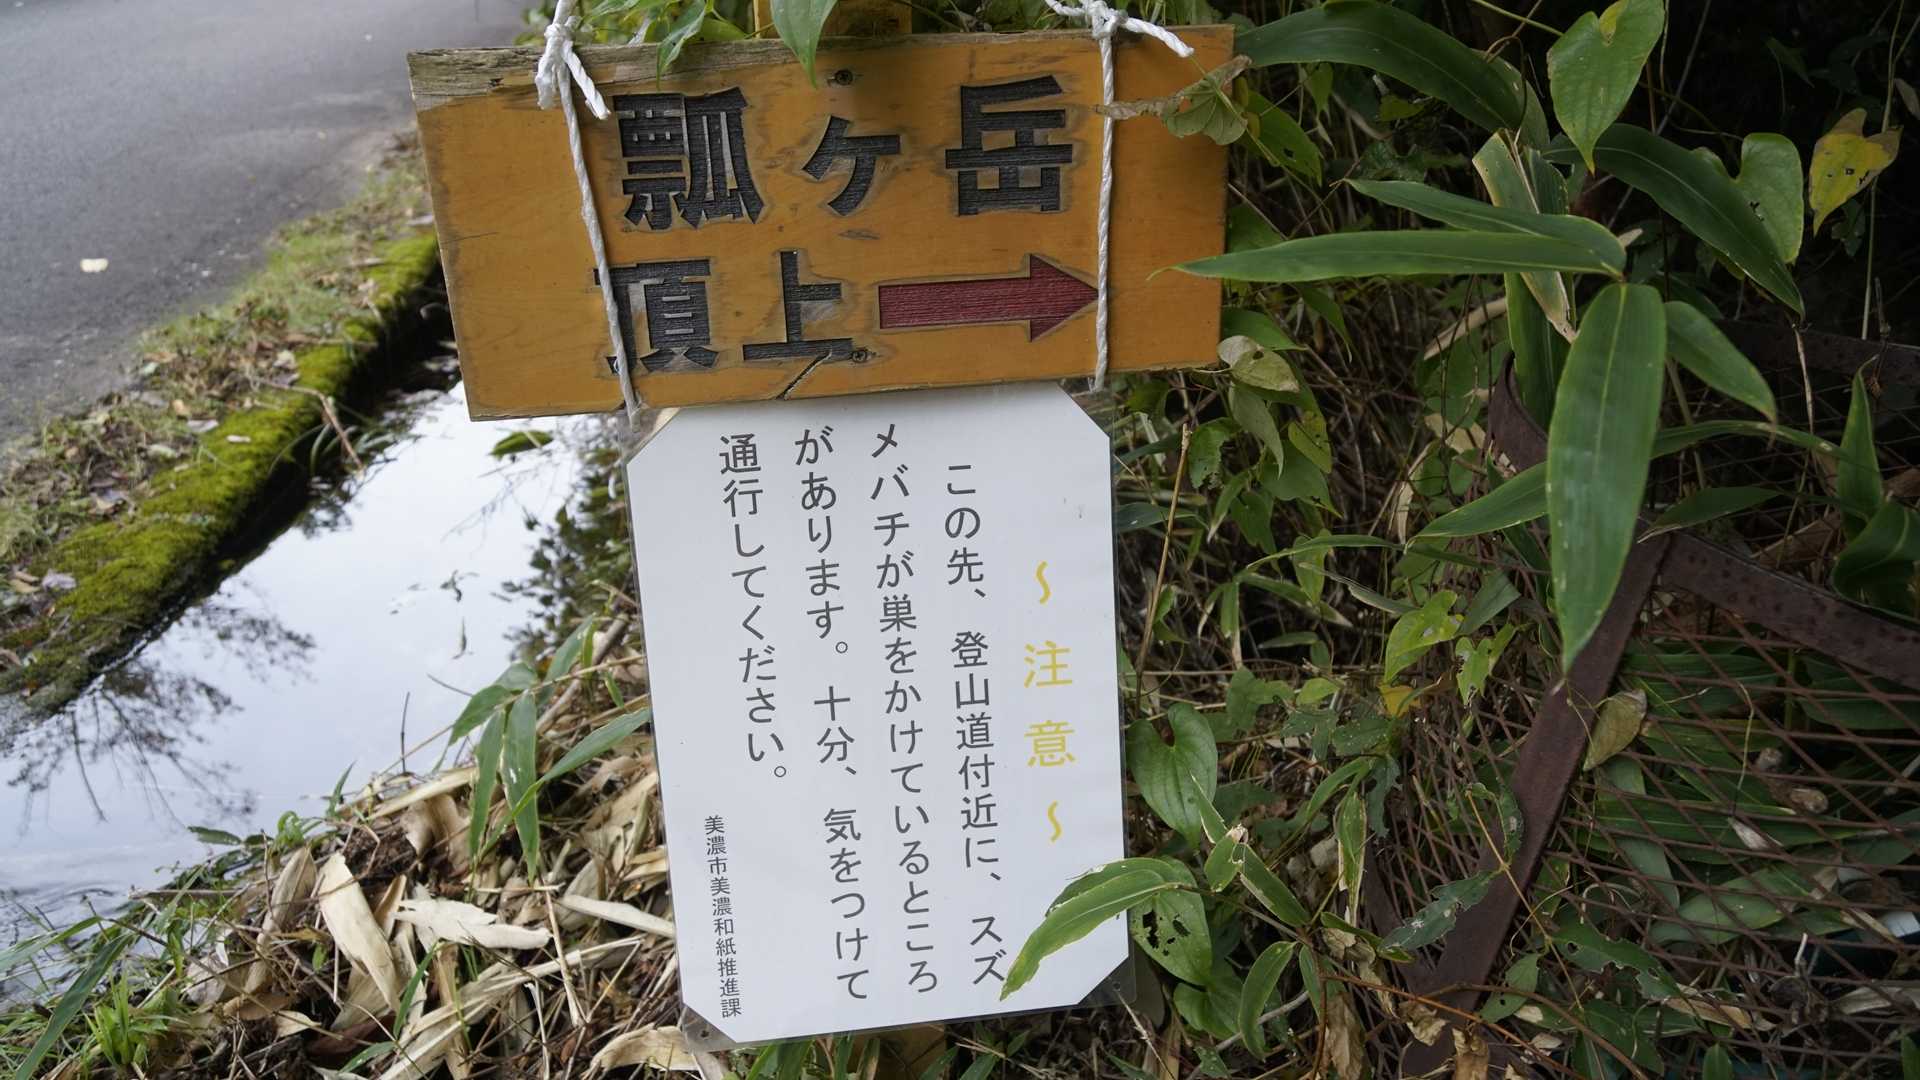 瓢ヶ岳
頂上
～注意～
この先、登山道付近に、スズ
メバチが巣をかけているところ
があります。十分、気をつけて
通行してください。
美濃市美濃和紙推進課